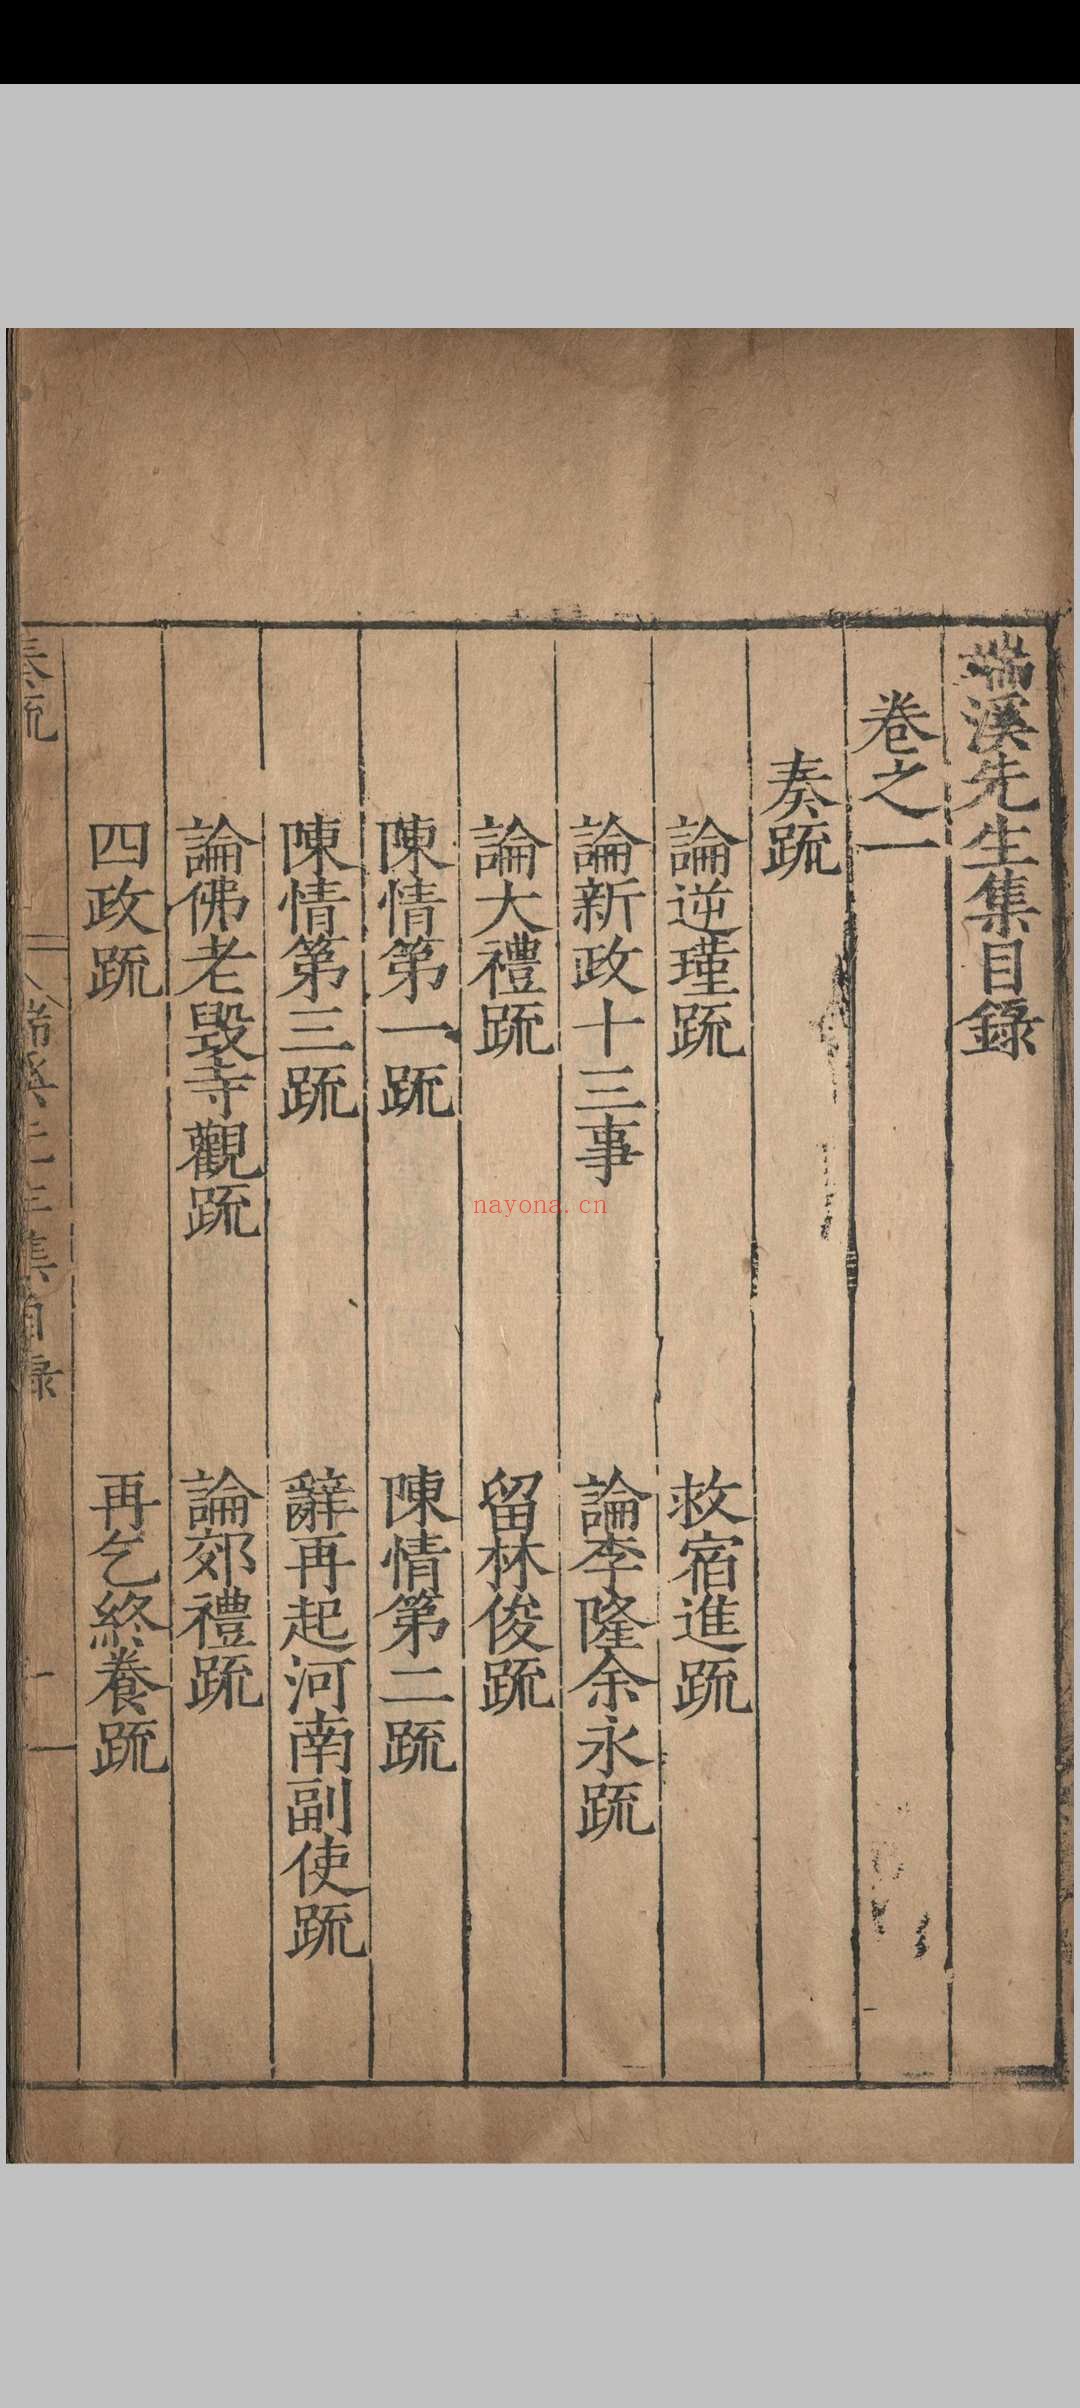 端溪先生集目錄
卷之一
奏䟽
論逆瑾䟽 救宿進䟽
論新政十三事 論李隆余永䟽
論大禮䟽 留林俊䟽
陳情第一䟽 陳情第二䟽
陳情第三䟽 辭再起河南副使䟽
論佛老毀寺觀䟽 論郊禮䟽
四政䟽 再乞終養䟽
奏䟽 端溪先生集目錄 一
nayona.cn